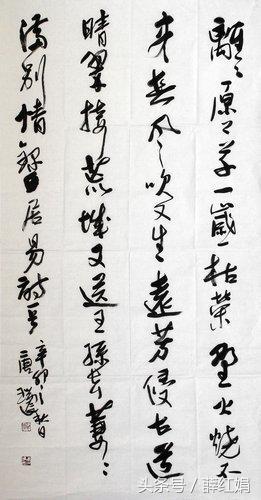 離〻原上草一歲一枯榮野火燒不
盡春風吹又生遠芳侵古道
晴翠接荒城又送王孫去萋〻
滿別情 白居易詩
辛卯秋日
頭条号 / 薛红娟